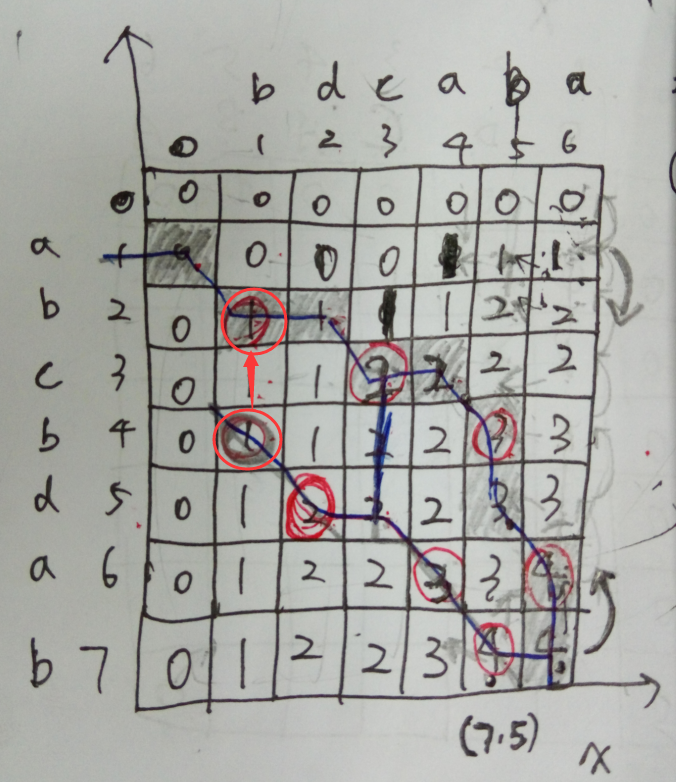 b d c a b a
0 1 2 3 4 5 6
0 0 0 0 0 0 0 0
a 1 0 0 0 0 1 1
b 2 0 1 1 1 2 2
c 3 0 1 2 2 2 2
b 4 0 1 1 2 3 3
d 5 0 1 2 2 2 3 3
a 6 0 1 2 2 3 3 4
b 7 0 1 2 2 3 4 4
(7.5)
x